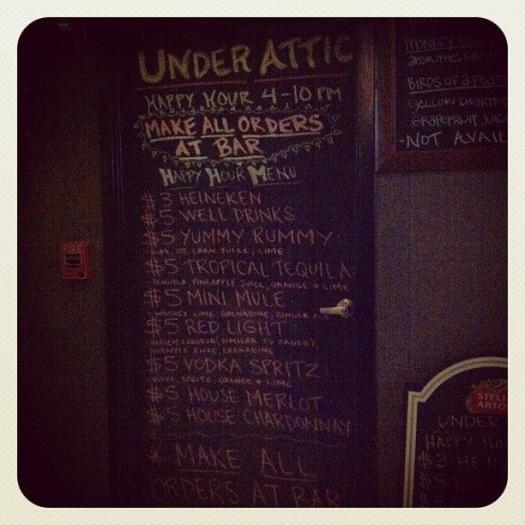 UNDER ATTIC
HAPPY HOUR 4-10 PM
MAKE ALL ORDERS
AT BAR
HAPPY HOUR MENU
$3 HEINEKEN
$5 WELL DRINKS
$5 YUMMY RUMMY
RUM, OJ, CRAN JUICE, LIME
$5 TROPICAL TEQUILA
TEQUILA, PINEAPPLE JUICE, ORANGE & LIME
$5 MINI MULE
WHISKEY LIME GRENADINE, GINGER
$5 RED LIGHT
HARLEM LIQUEUR (SIMILAR TO JAGER),
PINEAPPLE JUICE, GRENADINE
$5 VODKA SPRITZ
VODKA, SPRITE, ORANGE & LIME
$5 HOUSE MERLOT
$5 HOUSE CHARDONNAY
* MAKE ALL
ORDERS AT BAR
MONKEY
BIRDS OF A FEAT
YELLOW
GRAPEFRUIT JUIC
-NOT AVAIL
FIRE
STELL
ARTO
UNDER
HAPPY HO
$3 HEIN
$5